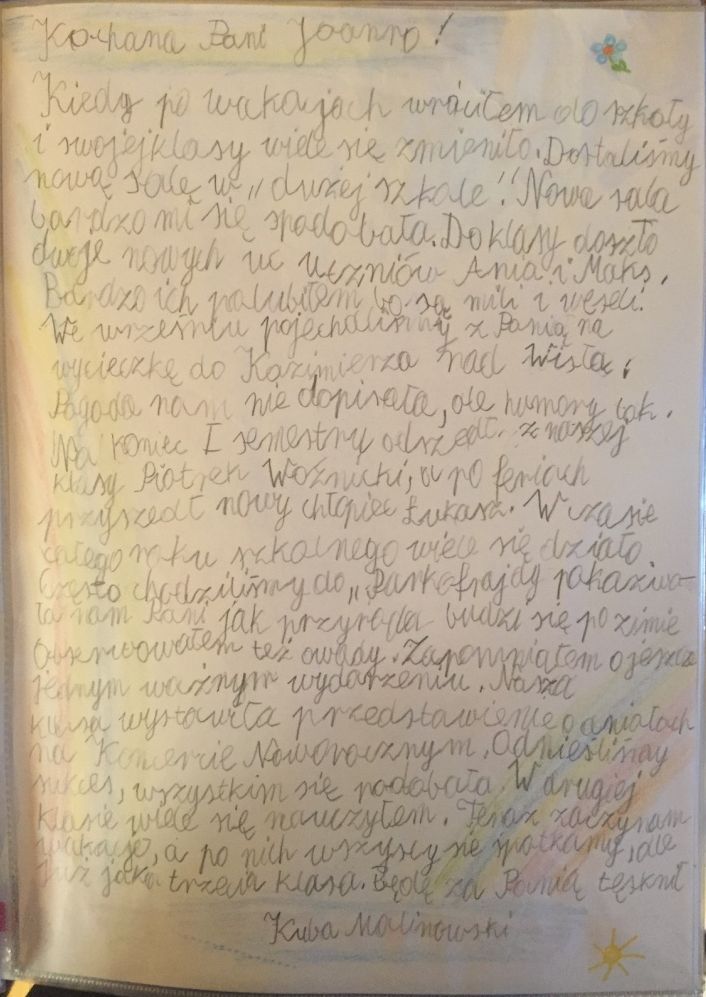 Kochana Pani Joanno!
Kiedy po wakajach wróciłem do szkoły
i swojej klasy wiele się zmieniło. Dostaliśmy
nową salę w „dużej szkole". Nowa sala
bardzo mi się spodobała. Do klasy doszło
dwoje nowych uc uczniów Ania i Maks.
Bardzo ich polubiłem bo są mili i weseli.
We wrześniu pojechaliśmy z Panią na
wycieczkę do Kazimierza nad Wisłą.
Pogoda nam nie dopisała, ale humory tak.
Na koniec I semestru odszedł z naszej
klasy Piotrek Woźnicki, a po feriach
przyszedł nowy chłopiec Łukasz. W czasie
całego roku szkolnego wiele się działo
Często chodziliśmy do „Parkofrajdy pokaziwa-
ła nam Pani jak przyroda budzi się po zimie
Obserwowałem też owady. Zapomniałem o jeszcze
jednym ważnym wydarzeniu. Nasza
klasa wystawiła przedstawienie o aniołach
na Koncercie Noworocznym. Odnieśliśmy
sukces, wszystkim się podobało. W drugiej
klasie wiele się nauczyłem. Teraz zaczynam
wakacje, a po nich wszyscy się spotkamy, ale
już jako trzecia klasa. Będę za Panią tęsknił
Kuba Malinowski